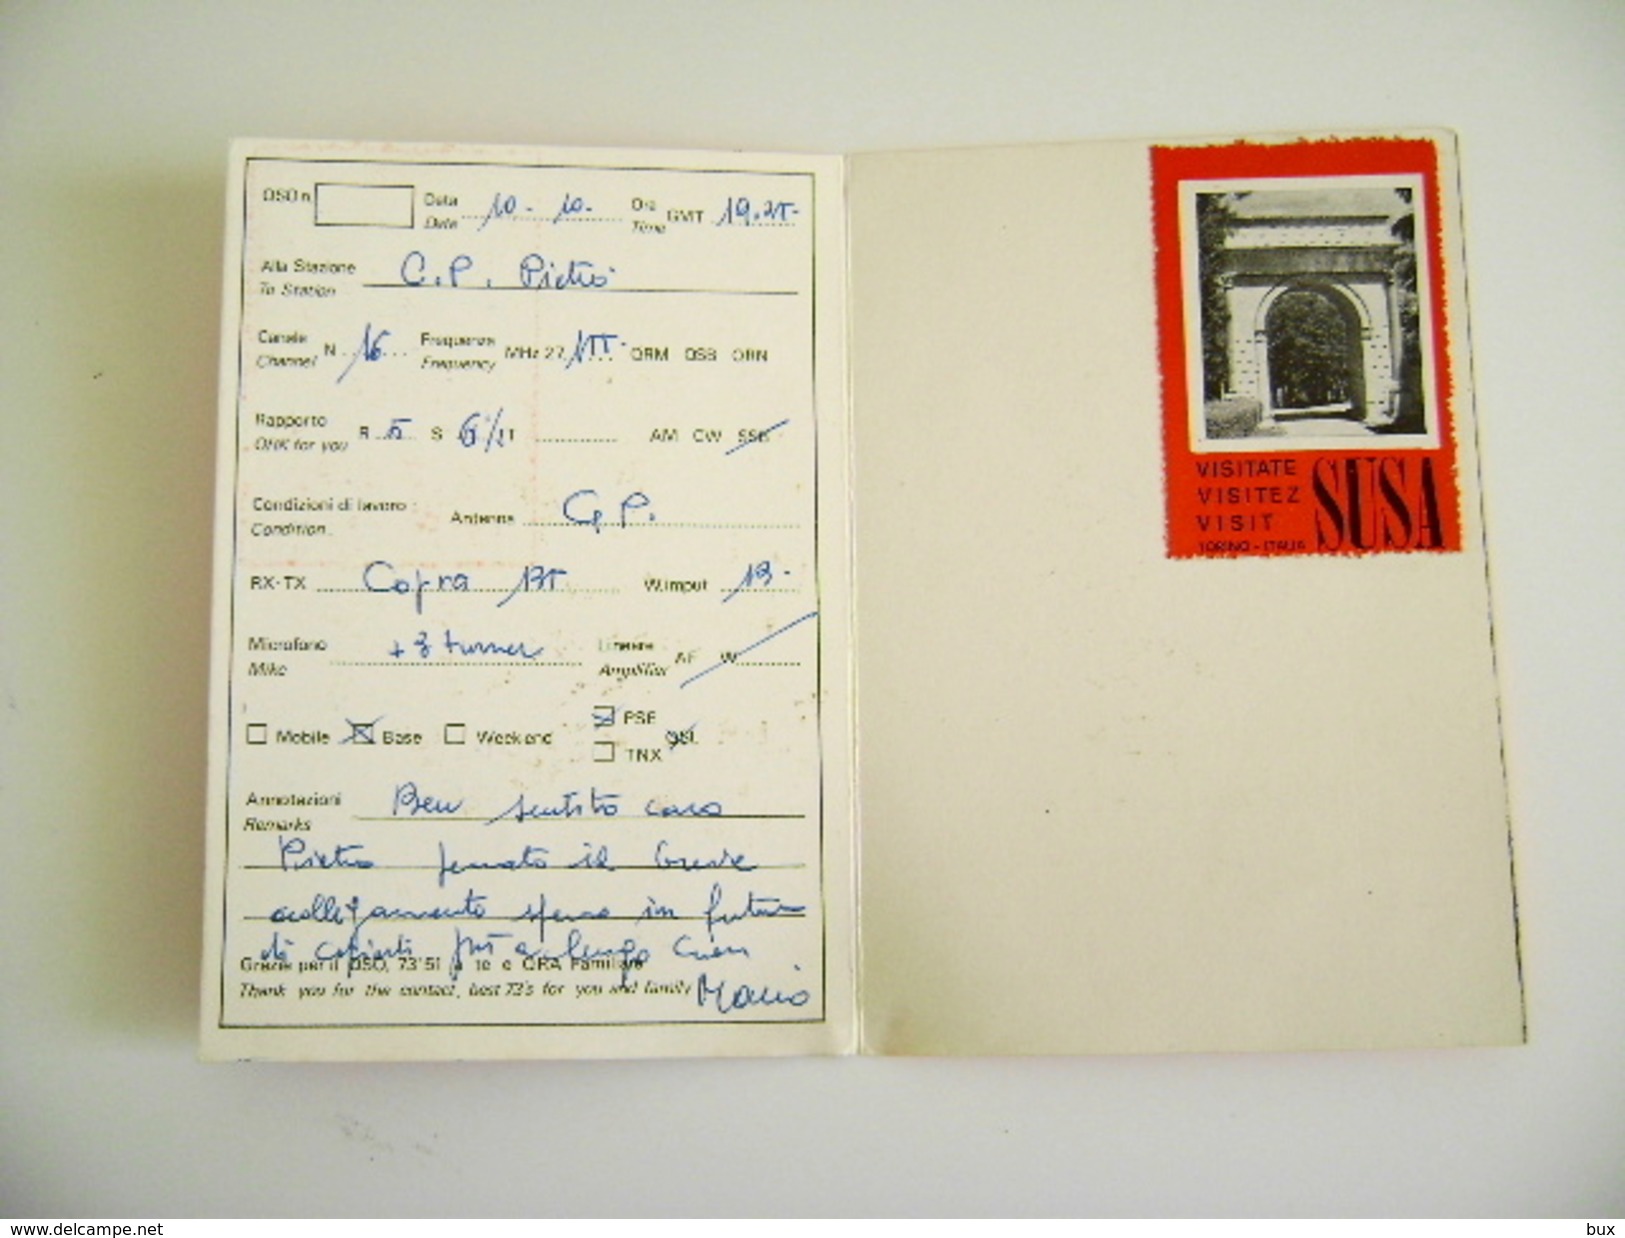 QSO n. Data 10 - 10 - Ora GMT 19.25
Date Time
Alla Stazione C.P. Pietro
To Station
Canale N. 16 Frequenza MHz 27,155 QRM QSB QRN
Channel Frequency
Rapporto R 5 S T AM CW SSB
QRK for you
Condizioni di lavoro: Antenna G.P.
Condition.
RX-TX Cobra 135 W.imput 13-
Microfono +3 turner Lineare AF W
Mike Amplifier
Mobile Base Week-end PSE QSL
TNX
Annotazioni Ben sentito caro
Remarks
Pietro peccato il breve
collegamento spero in futuro
di copiarti più a lungo Ciao
Grazie per il QSO, 73'51 a te e QRA Familiare
Thank you for the contact, best 73's for you and family Mario
VISITATE
VISITEZ
VISIT
TORINO - ITALIA
SUSA
www.delcampe.net
bux